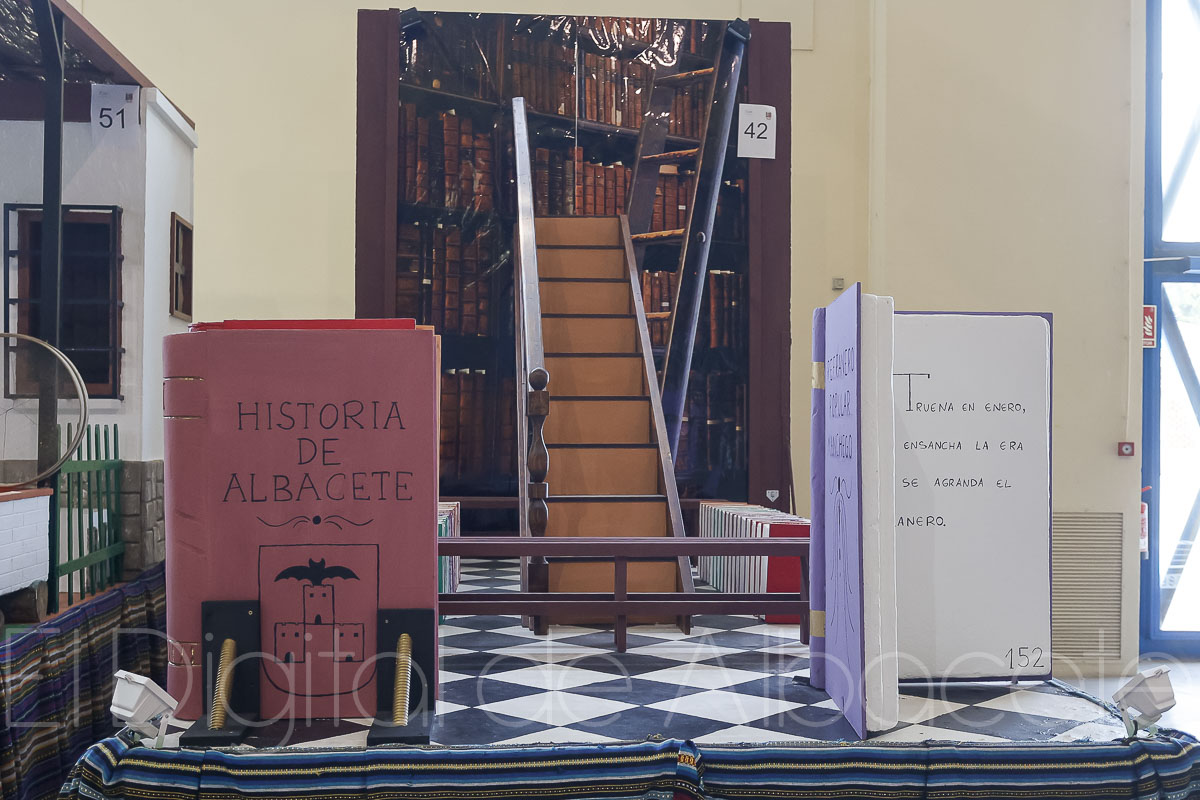 51
42
HISTORIA
DE
ALBACETE
REFRANERO
POPULAR
MANCHEGO
TRUENA EN ENERO,
ENSANCHA LA ERA
SE AGRANDA EL
ANERO.
152
El Digital de Albacete